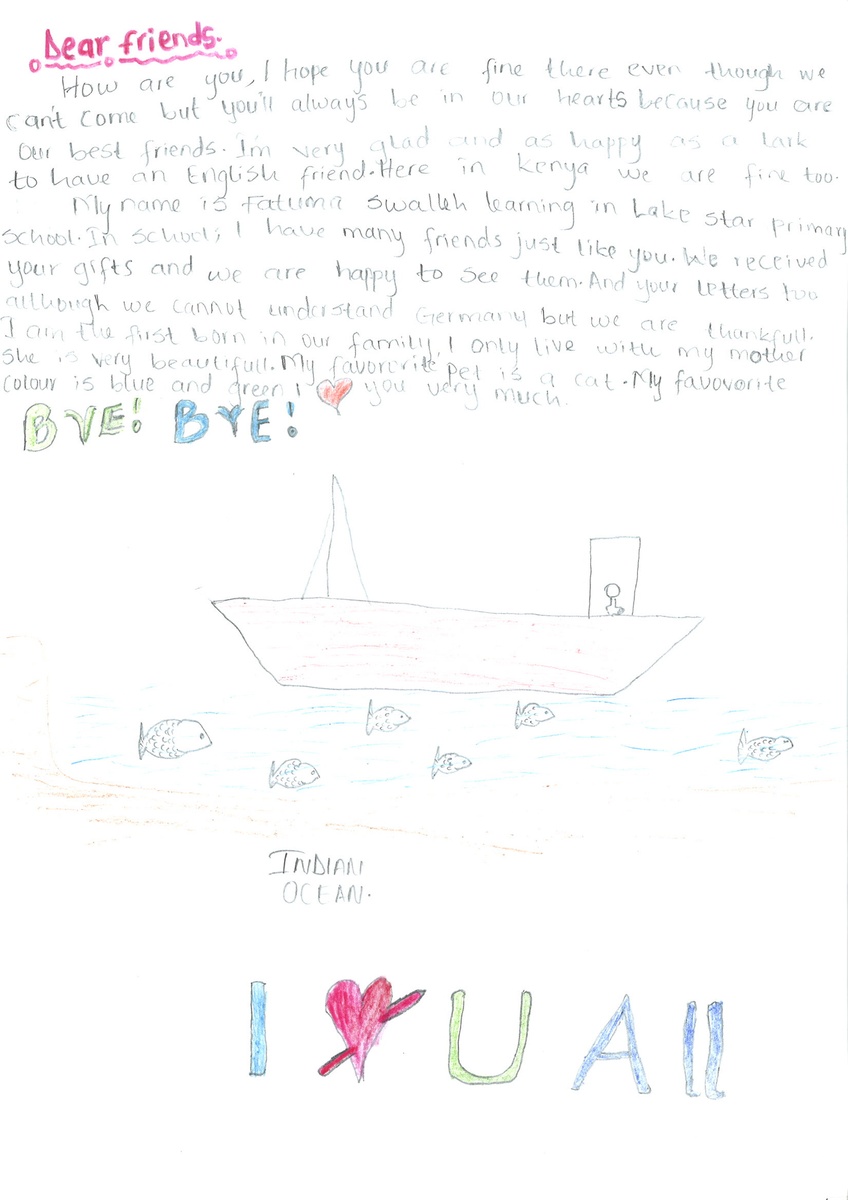 Dear friends.
How are you, I hope you are fine there even though we
can't come but you'll always be in our hearts because you are
our best friends. I'm very glad and as happy as a lark
to have an English friend. Here in Kenya we are fine too.
My name is Fatuma Swalleh learning in Lake star primary
school. In school; I have many friends just like you. We received
your gifts and we are happy to see them. And your letters too
although we cannot understand Germany but we are thankfull.
I am the first born in our family, I only live with my mother
she is very beautifull. My favorcrite pet is a cat. My favovorite
colour is blue and green I ❤ you very much.
BYE! BYE!
INDIAN
OCEAN.
I ❤ U All